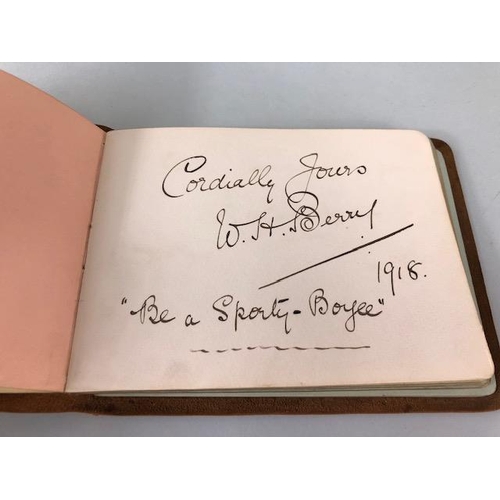 Cordially Yours
W. H. Berry
1918.
"Be a Sporty-Boyee"